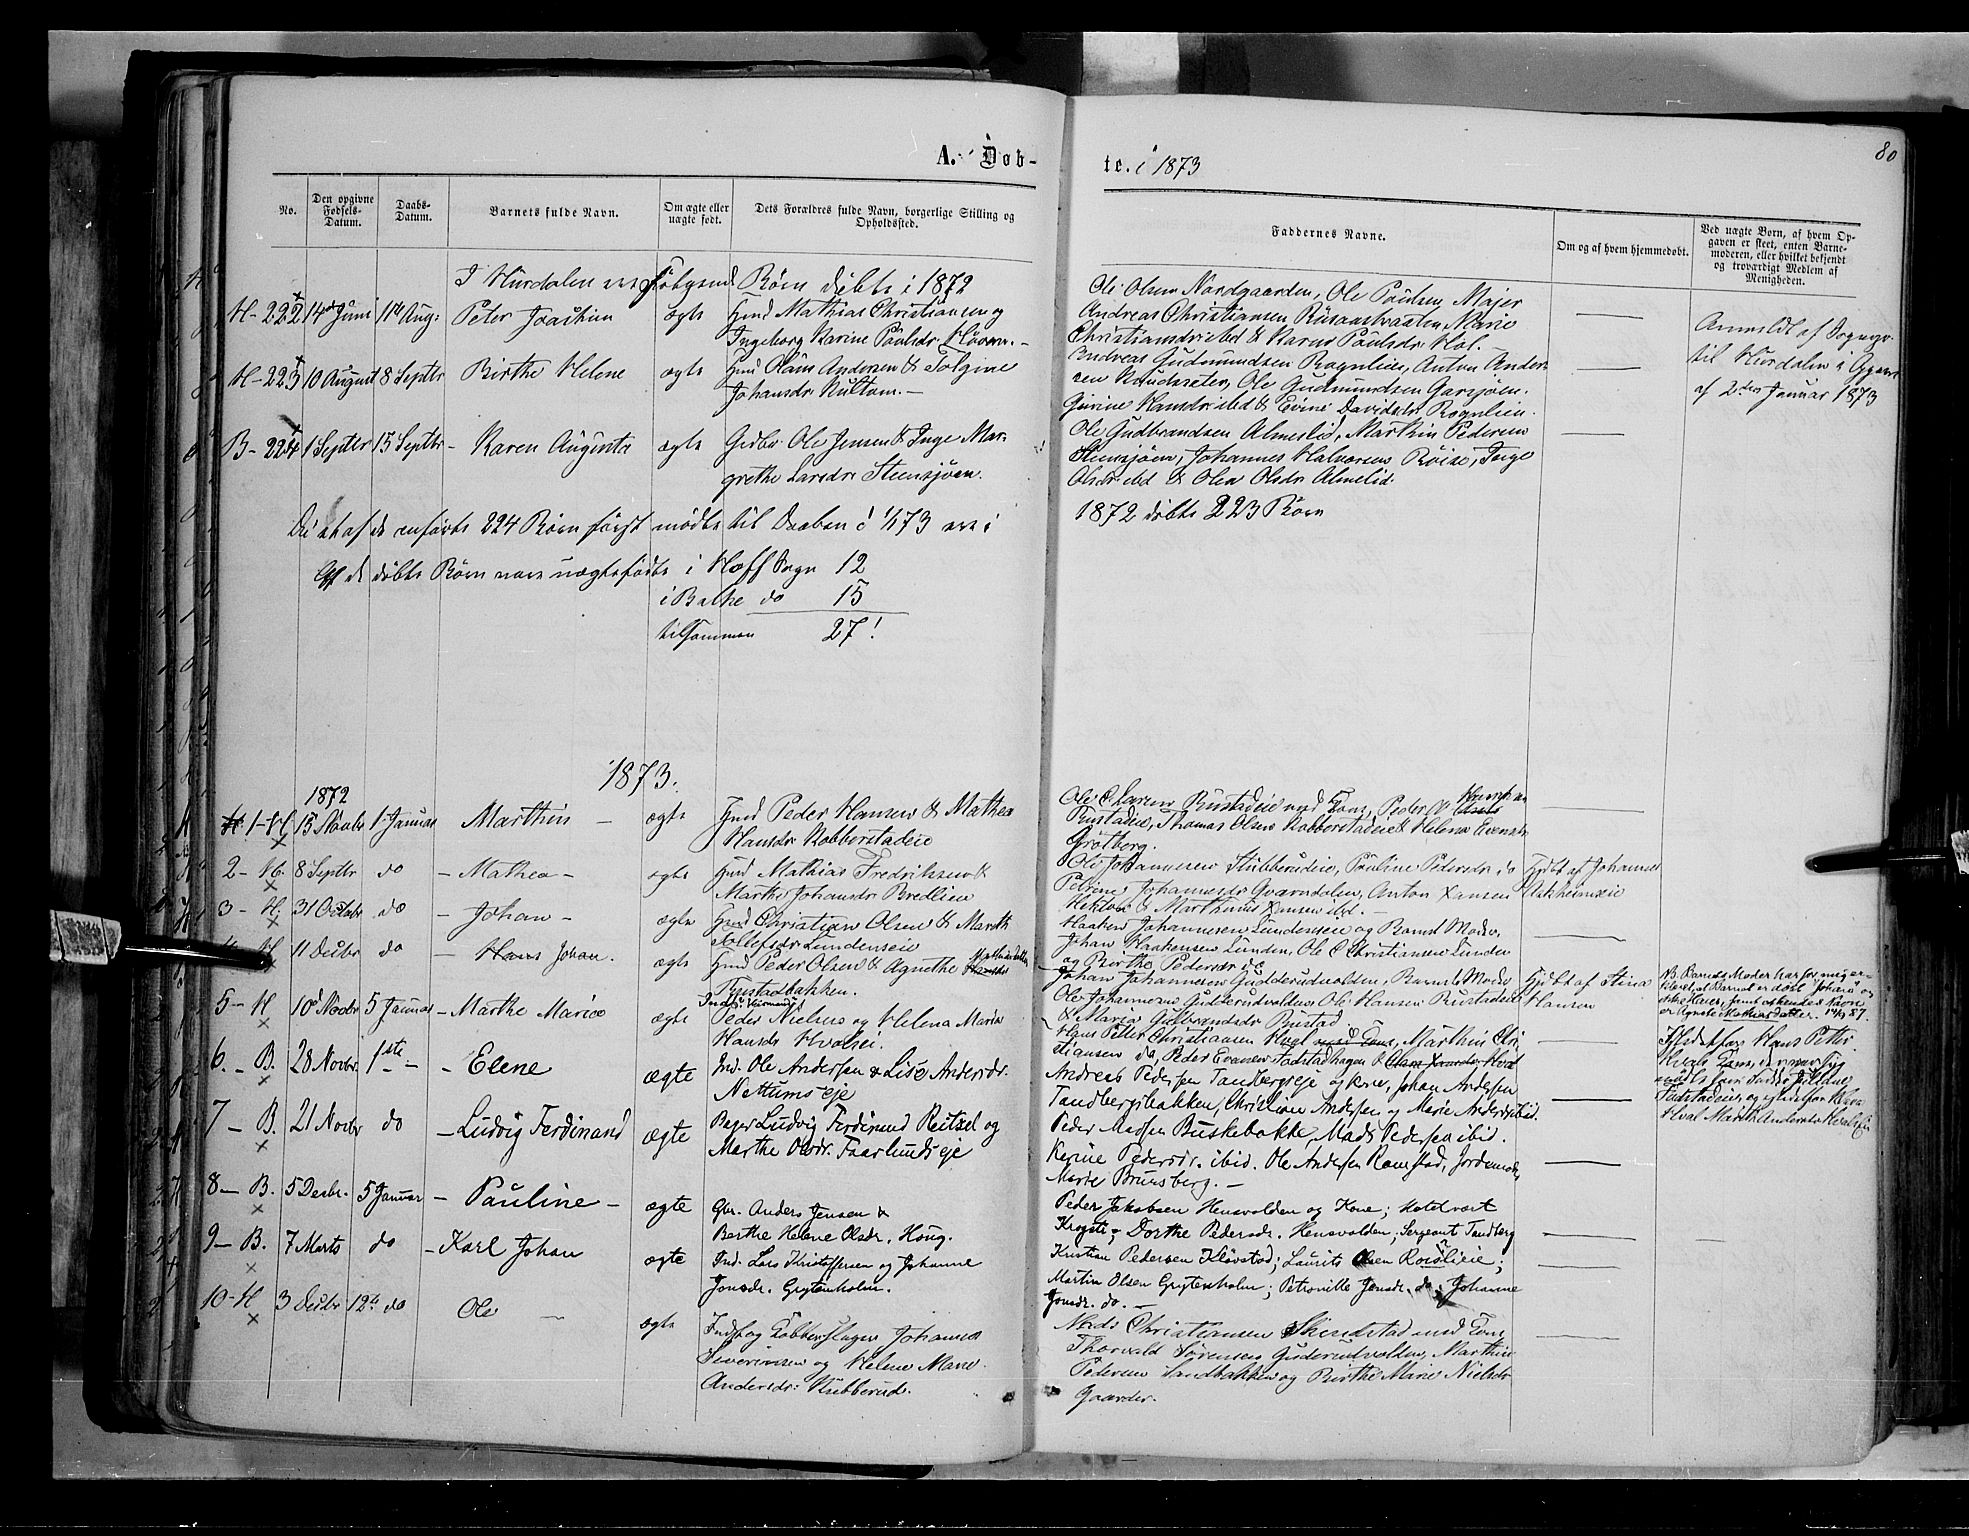 A. Døb-
te. i 1873
80
No.
Den opgivne Fødsels-Datum.
Daabs-Datum.
Barnets fulde Navn.
Om ægte eller uægte født.
Dets Forældres fulde Navn, borgerlige Stilling og Opholdssted.
Faddernes Navne.
Om og af hvem hjemmedøbt.
Ved uægte Børn, af hvem Opgaven er skeet, enten Barnemoderen, eller hvilket bekjendt og troværdigt Medlem af Menigheden.
I Hurdalen ere følgende Børn døbte i 1872
H- 222 14de Juni 11te Aug: Peter Joachim ægte Hmd Mathias Christiansen og
Ingeborg Karine Paulsdr Hover. -
Ole Olsen Nordgaarden, Ole Paulsen Majer
Andreas Christiansen Marie
Christiansdr ibd & Karen Paulsdr Hol. -
H- 223 10 August 8 Septbr Birthe Helene ægte Hmd Claus Andersen & Tolgine
Johansdr Hultom. -
Andreas Gudmundsen Rognlien, Anton Ander-
sen Knudseter, Ole Gudmundsen Garsjøen.
Gurine Hansdr ibd & Evine Davidsdr Rognlien.
Anmeldt af Sognepr.
til Hurdalen i
af 2den Januar 1873
B- 224 1 Septbr 15 Septbr - Karen Augusta ægte Gidbr Ole Jensen & Inge Mar-
grethe Larsdr Steensjøen.
Ole Gudbrandsen Almeslid, Marthin Pedersen
Steensjøen, Johannes Halvorsen Røise, Inge
Olsdr ibd & Olea Olsdr Almelid.
Da et af de anførte 224 Børn først mødte til Daaben d 1/1 73 ere i
1872 døbte 223 Børn
Af de døbte Børn vare uægtefødte i Hoff Sogn 12
i Balke do 15
tilsammen 27!
1873.
1872
1-H 15 Novbr 1 Januar Marthin - ægte Hmd Peder Hansen & Mathea
Hansdr Kobberstadeie
Ole Larsen Rustadeie med Kone, Peder
Rustadeie, Thomas Olsen Kobberstadeie & Helene Evensdr
Grøtberg.
2- H. 8 Septbr do - Mathea - ægte Hmd Mathias Fredriksen &
Marthe Johansdr Bredlien
Ole Johannesen Stubberudeie, Pauline Pedersdr do
Petrine Johannesdr Qværndalen, Anton Hansen
& Marthinus Hansen ibd. -
Hjdt af Johannes
3- H. 31 Octobr do - Johan - ægte Hmd Christian Olsen & Mareth
Tollefsdr Lundenseie
Haaken Johannesen Lundenseie og Barnets Moder,
Johan Haakensen Lunden, Ole C Christiansen Lunden
og Birthe Pedersdr do
4- H 11 Decbr do - Hans Johan. ægte Hmd Peder Olsen & Agnethe Mathiasdatter
Rustadbakken.
Johan Johannesen Gudderudvolden, Barnets Moder
Ole Johannesen Gudderudvolden, Ole Hansen Rustadeie
& Maria Gulbrandsdr Rustad
Hjdbt af Stina
Hansen
NB. Barnets Moder har for mig er-
klæret, at Barnet er døbt "Johan" og
ikke Hans, samt at hendes Navn
er Agnete Mathiasdatter. 87.
5- H 10de Novbr 5 Januar - Marthe Marie ægte
Peder Nielsen og Helena Maria
Hansdr Hvalseie.
Hans Petter Christiansen Hval med Kone, Marthin Chri-
stiansen do, Peder Evensen Fadstadhagen
Istedetfor Hans Petter
6.- B. 28 Novbr. 1ste - Elene ægte Ind. Ole Andersen & Lise Andersdr.
Nettumseje
Andreas Pedersen Tandbergseje og Kone, Johan Andersen
Tandbergsbakken, Christian Andersen og Marie Andersdr ibid.
7- B. 21 Novbr do - Ludvig Ferdinand ægte Bager Ludvig Ferdinand Reitzel og
Marthe Olsdr. Faarlundseje
Peder Madsen Buskebakke, Mads Pedersen ibid.
Karine Pedersdr. ibid. Ole Andersen Ramstad, Jordemoder
Marie Brunsberg. -
8- B. 5 Decbr. 5 Januar - Pauline - ægte Gbr. Anders Jensen &
Berthe Helene Olsdr. Houg.
Peder Jakobsen Hensvolden og Kone; Hotelvært
Dorthe Pedersdr. Hensvolden; Sergeant Tandberg
9- B. 7 Marts do - Karl Johan ægte Ind. Lars Kristoffersen og Johanne
Jonsdr. Grytenholm.
Kristian Pedersen Kløvstad; Laurits Olsen Roislieie;
Martin Olsen Grytenholm; Petronille Jensdr. do; Johanne
Jonsdr. do. -
10-H 3 Decbr 12te do Ole - ægte Indst og Kobberslager Johannes
Severinsen og Helene Marie
Andersdr: Kubberud.
Mads Christiansen Skindstad med Kone
Thorvald Sørensen Guderudvolden, Marthin
Pedersen Sandbakken og Birthe Marie Nielsdr
Gaarder.